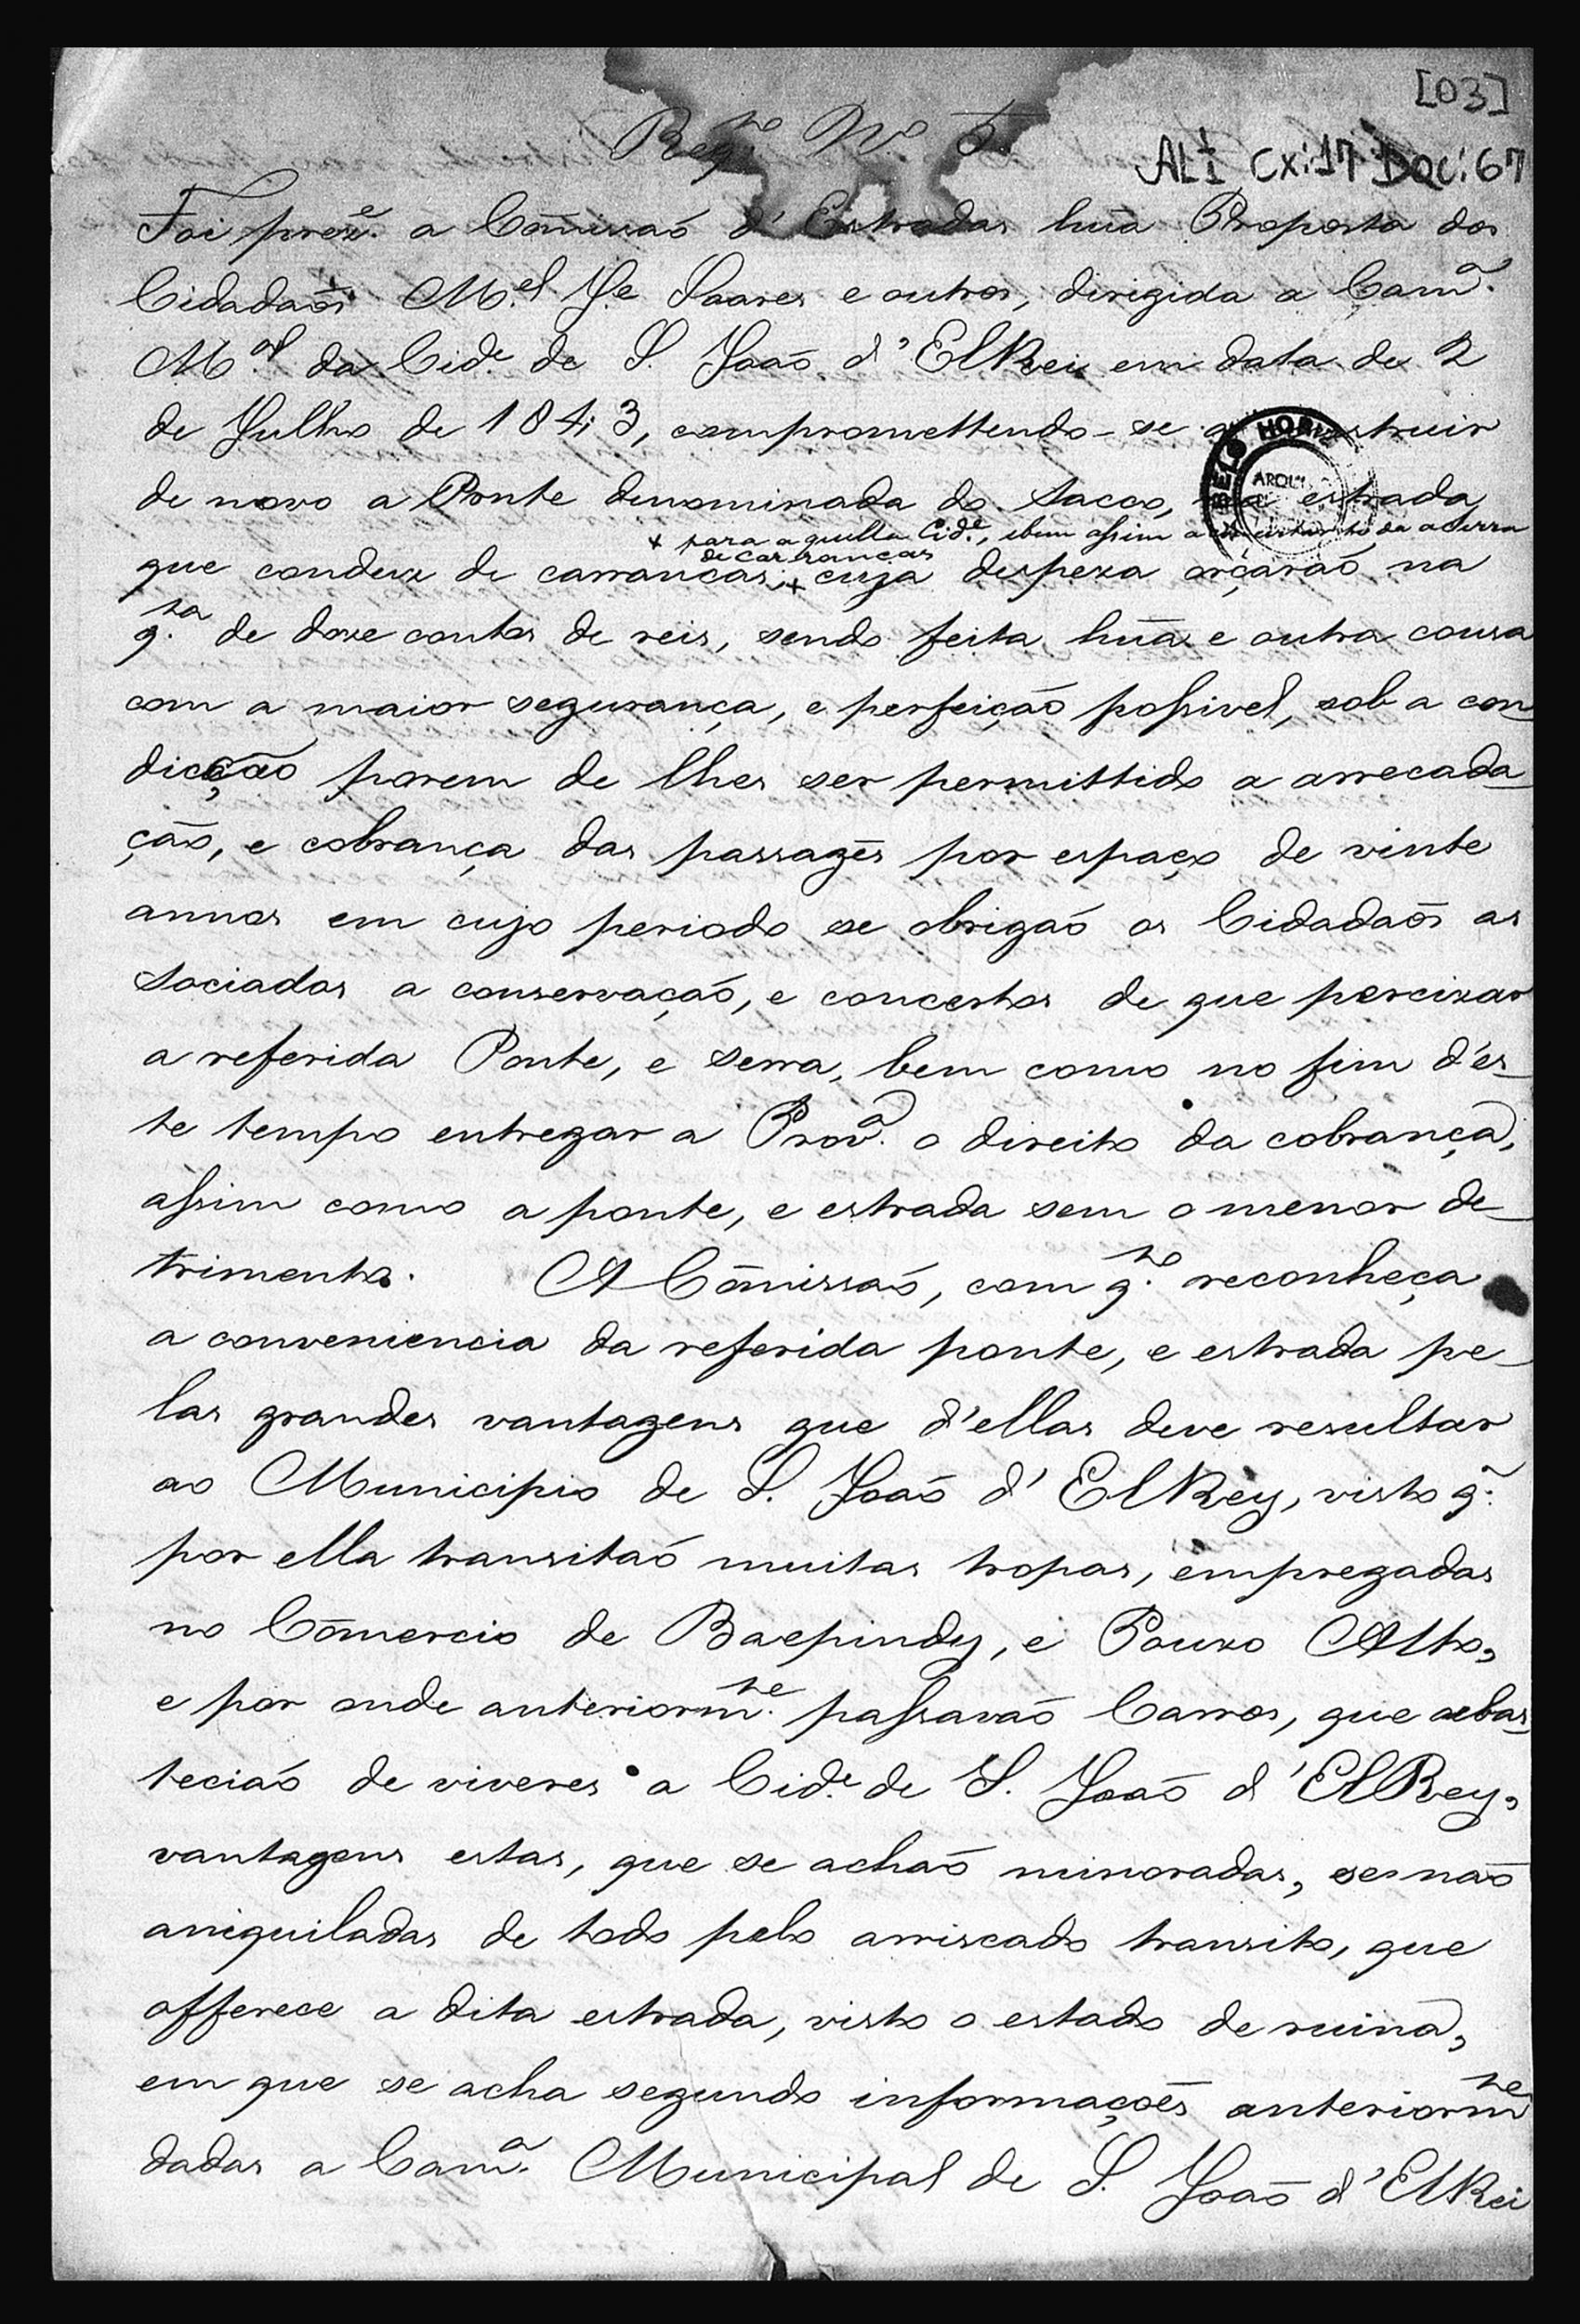 [03]
Reg.to No 5
AL1 Cx:17 Doc:67
Foi prez.e a Comissaõ d' Estradas huã Proposta dos
Cidadaõs M.el J.e Soares e outros, dirigida a Cam.a
M.al da Cid.e de S. Joaõ d' ElRei em data de 2
de Julho de 1843, compromettendo-se a struir
BELO HORIZ
ARQU
de novo a Ponte denominada do Sacco, na estrada
+ para aquella Cid.e, ebem assim a da aserra
de carrancas
que conduz de carrancas, + cuja despeza orçaraõ na
q.ta de doze contos de reis, sendo feita huã e outra cousa
com a maior segurança, e perfeiçaõ possivel, sob a con
dicçaõ porem de lhes ser permittido a arrecada
çaõ, e cobrança das passagẽs por espaço de vinte
annos em cujo periodo se obrigaõ os Cidadaõs as
sociados a conservaçaõ, e concertos de que percizar
a referida Ponte, e serra, bem como no fim d'es
te tempo entregar a Prov.a o direito da cobrança,
assim como a ponte, e estrada sem o menor de
trimento. A Comissaõ, com q.to reconheça
a conveniencia da referida ponte, e estrada pe
las grandes vantagens que d'ellas deve resultar
ao Municipio de S. Joaõ d' ElRey, visto q.
por ella transitaõ muitas tropas, empregadas
no Comercio de Baependy, e Pouzo Alto,
e por onde anteriorm.te passavaõ Carros, que abas
teciaõ de viveres a Cid.e de S. Joaõ d' ElRey,
vantagens estas, que se achaõ minoradas, senaõ
aniquiladas de todo pelo arriscado transito, que
offerece a dita estrada, visto o estado de ruina,
em que se acha segundo informaçoẽs anteriorm.te
dadas a Cam.a Municipal de S. Joaõ d' ElRei